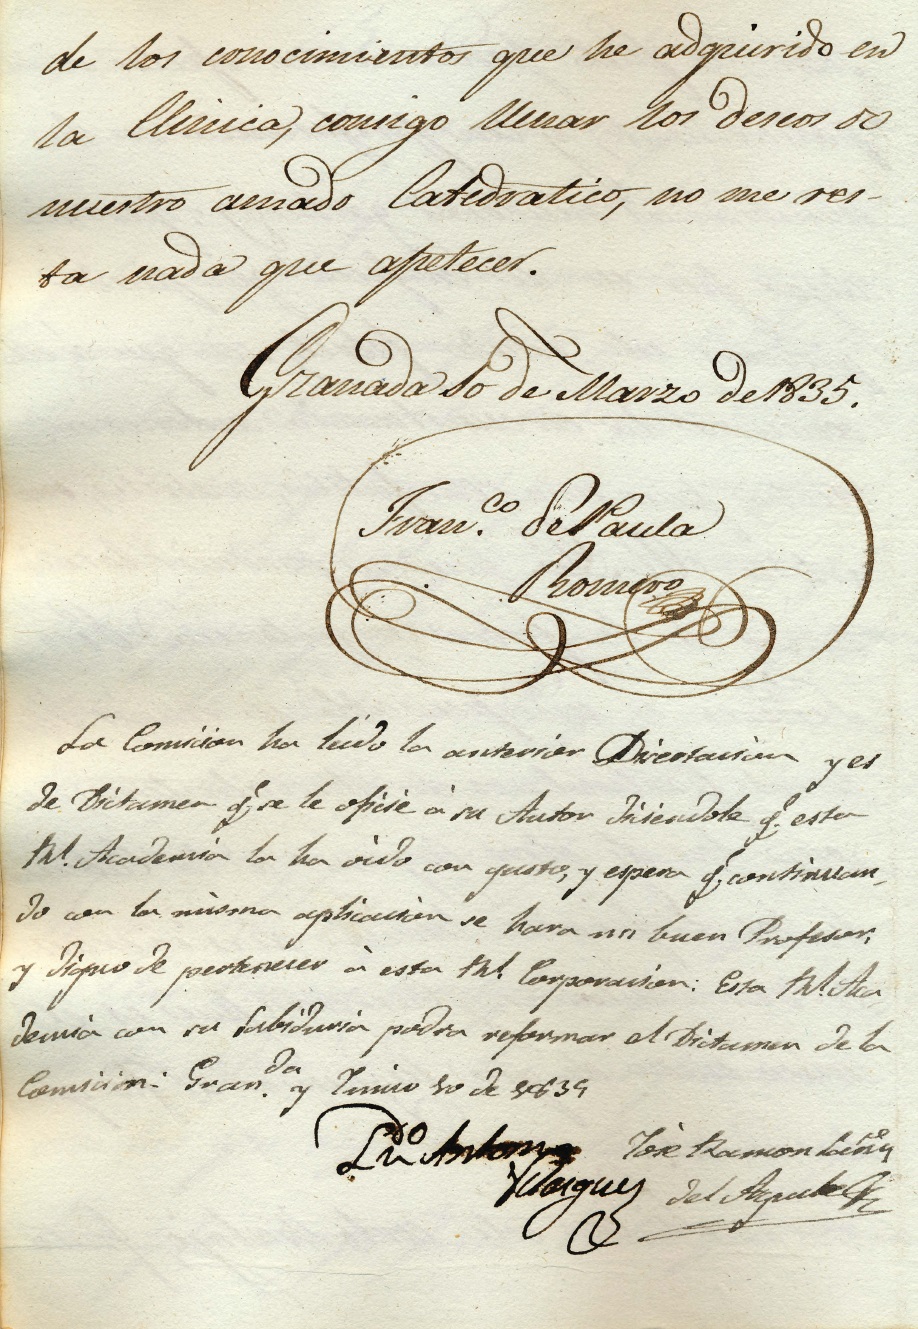 de los conocimientos que he adquirido en
la Clinica, consigo llenar los deseos de
nuestro amado Catedratico, no me res-
ta nada que apetecer.
Granada 10 de Marzo de 1835.
Fran.co de Paula
Romero
La Comision ha leido la anterior Disertacion y es
de Dictamen q.e se le oficie á su Autor disiendole q.e esta
Rl. Academia la ha oido con gusto, y espera q.e continuan-
do con la misma aplicacion se hara un buen Profesor,
y digno de pertenecer á esta Rl. Corporacion: Esta Rl. Aca
demia con su sabiduria podra reformar el Dictamen de la
Comision: Gran.da y Junio de 1835
Ldo Antonio José Ramon
Vazquez del